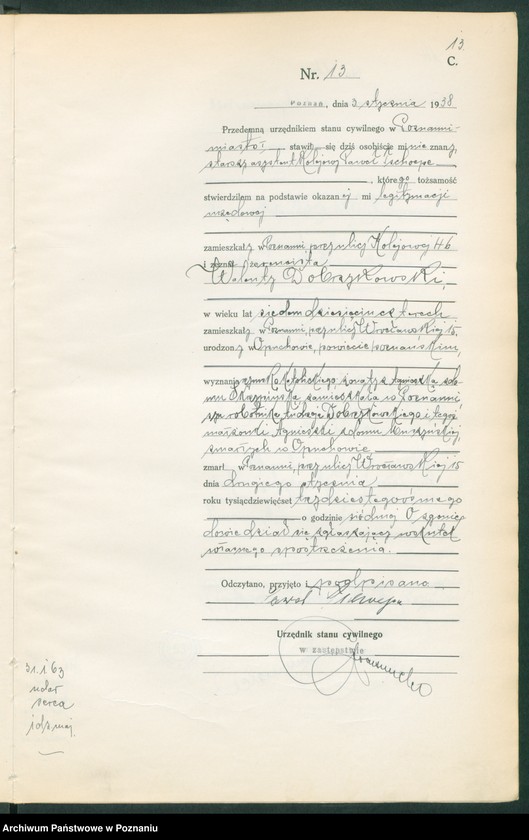 13.
C.
Nr. 13
Poznań, dnia 3 stycznia 1938
Przedemną urzędnikiem stanu cywilnego w Poznaniu-
miasto, stawił się dziś osobiście mi nie znany,
starszy asystent kolejowy Paweł Tschoepe
, którego tożsamość
stwierdziłem na podstawie okazanej mi legitymacji
urzędowej
zamieszkały w Poznaniu, przy ulicy Kolejowej 46
i zeznał, że rencista
Walenty Dobrzykowski,
w wieku lat siedemdziesięciu czterech
zamieszkały w Poznaniu, przy ulicy Wrocławskiej 15,
urodzony w Opuchowie, powiecie poznańskim,
wyznania rzym. katolickiego, żonaty z Agnieszką z do-
mu, zamieszkałą w Poznaniu,
syn robotnika i tegoż
małżonki Agnieszki z domu
zmarłych w Opuchowie
zmarł w Poznaniu, przy ulicy Wrocławskiej 15
dnia drugiego stycznia
roku tysiącdziewięćset trzydziestegoósmego
o godzinie siódmej. O zgonie
dowiedział się zgłaszający wskutek
własnego spostrzeżenia.
Odczytano, przyjęto i podpisano
Paweł Tschoepe
Urzędnik stanu cywilnego
w zastępstwie
31. i 63
udar
serca
Archiwum Państwowe w Poznaniu